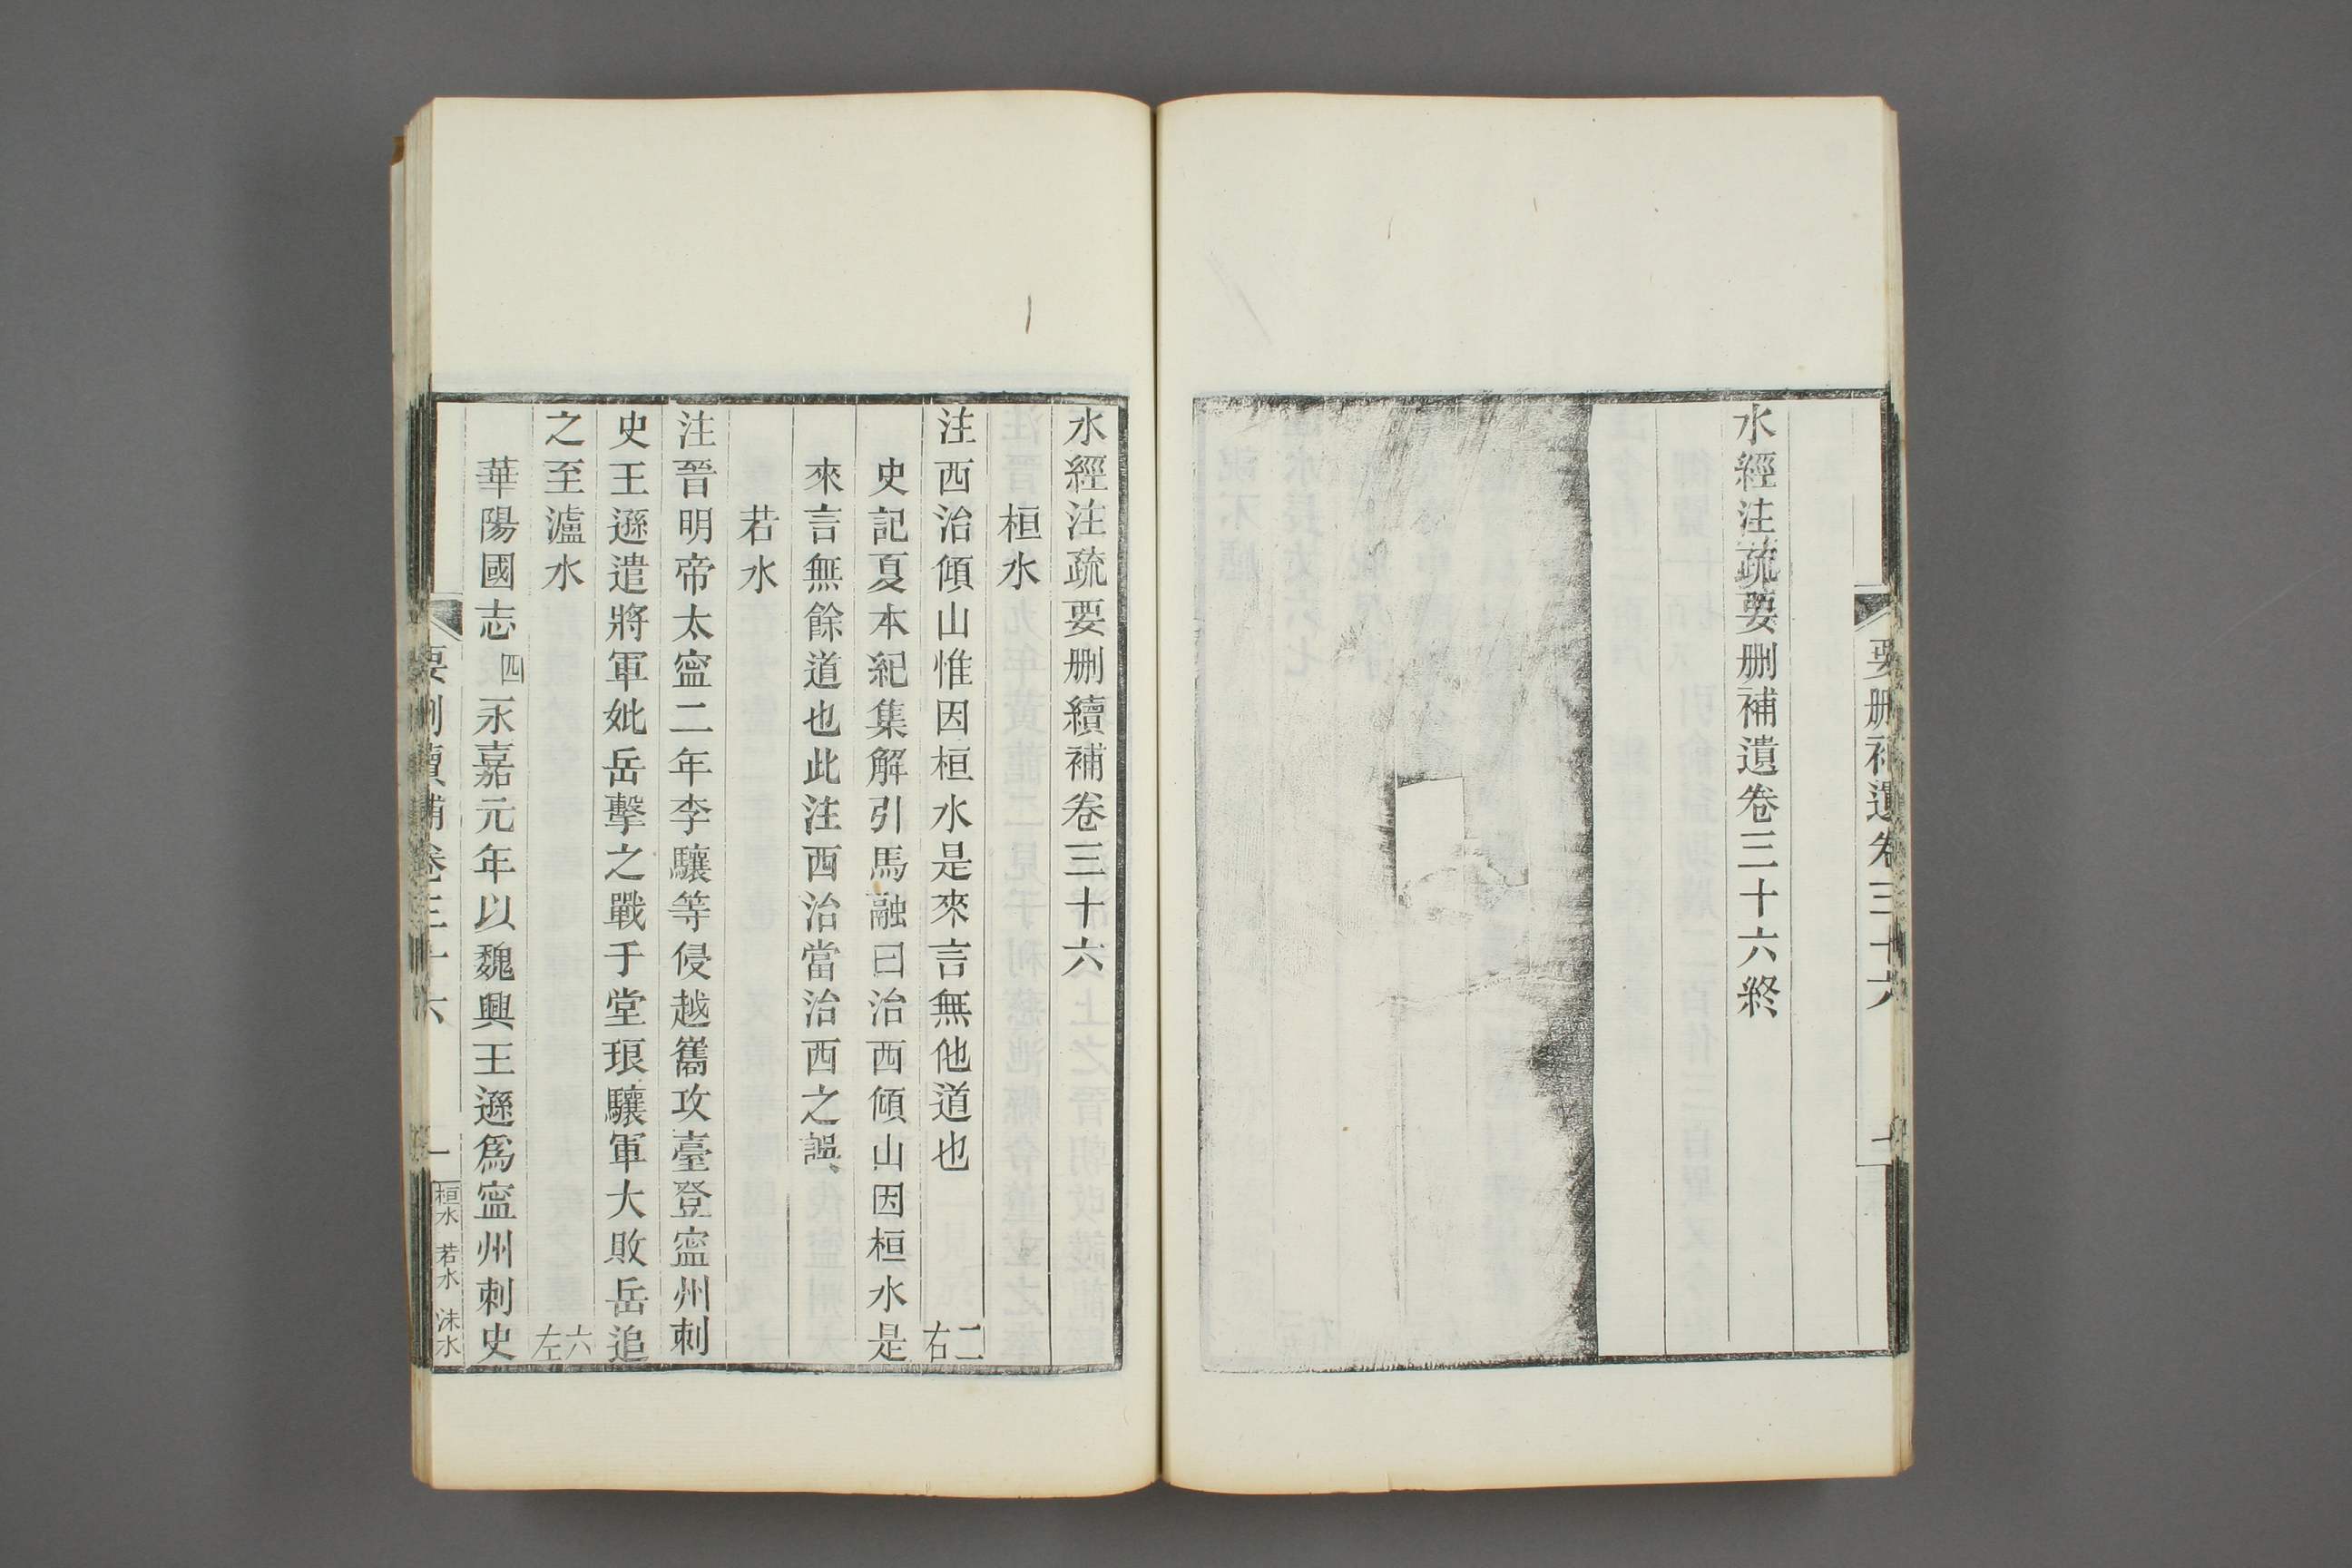 要刪補遺卷三十六
水經注疏要刪補遺卷三十六終
水經注疏要刪續補卷三十六
桓水
注西治傾山惟因桓水是來言無他道也 二右
史記夏本紀集解引馬融曰治西傾山因桓水是
來言無餘道也此注西治當治西之誤
若水
注晉明帝太寍二年李驤等侵越嶲攻臺登寍州刺
史王遜遣將軍姚岳擊之戰于堂琅驤軍大敗岳追
之至瀘水 六左
華陽國志四永嘉元年以魏興王遜爲寍州刺史
要刪續補卷三十六 一 桓水 若水 沬水